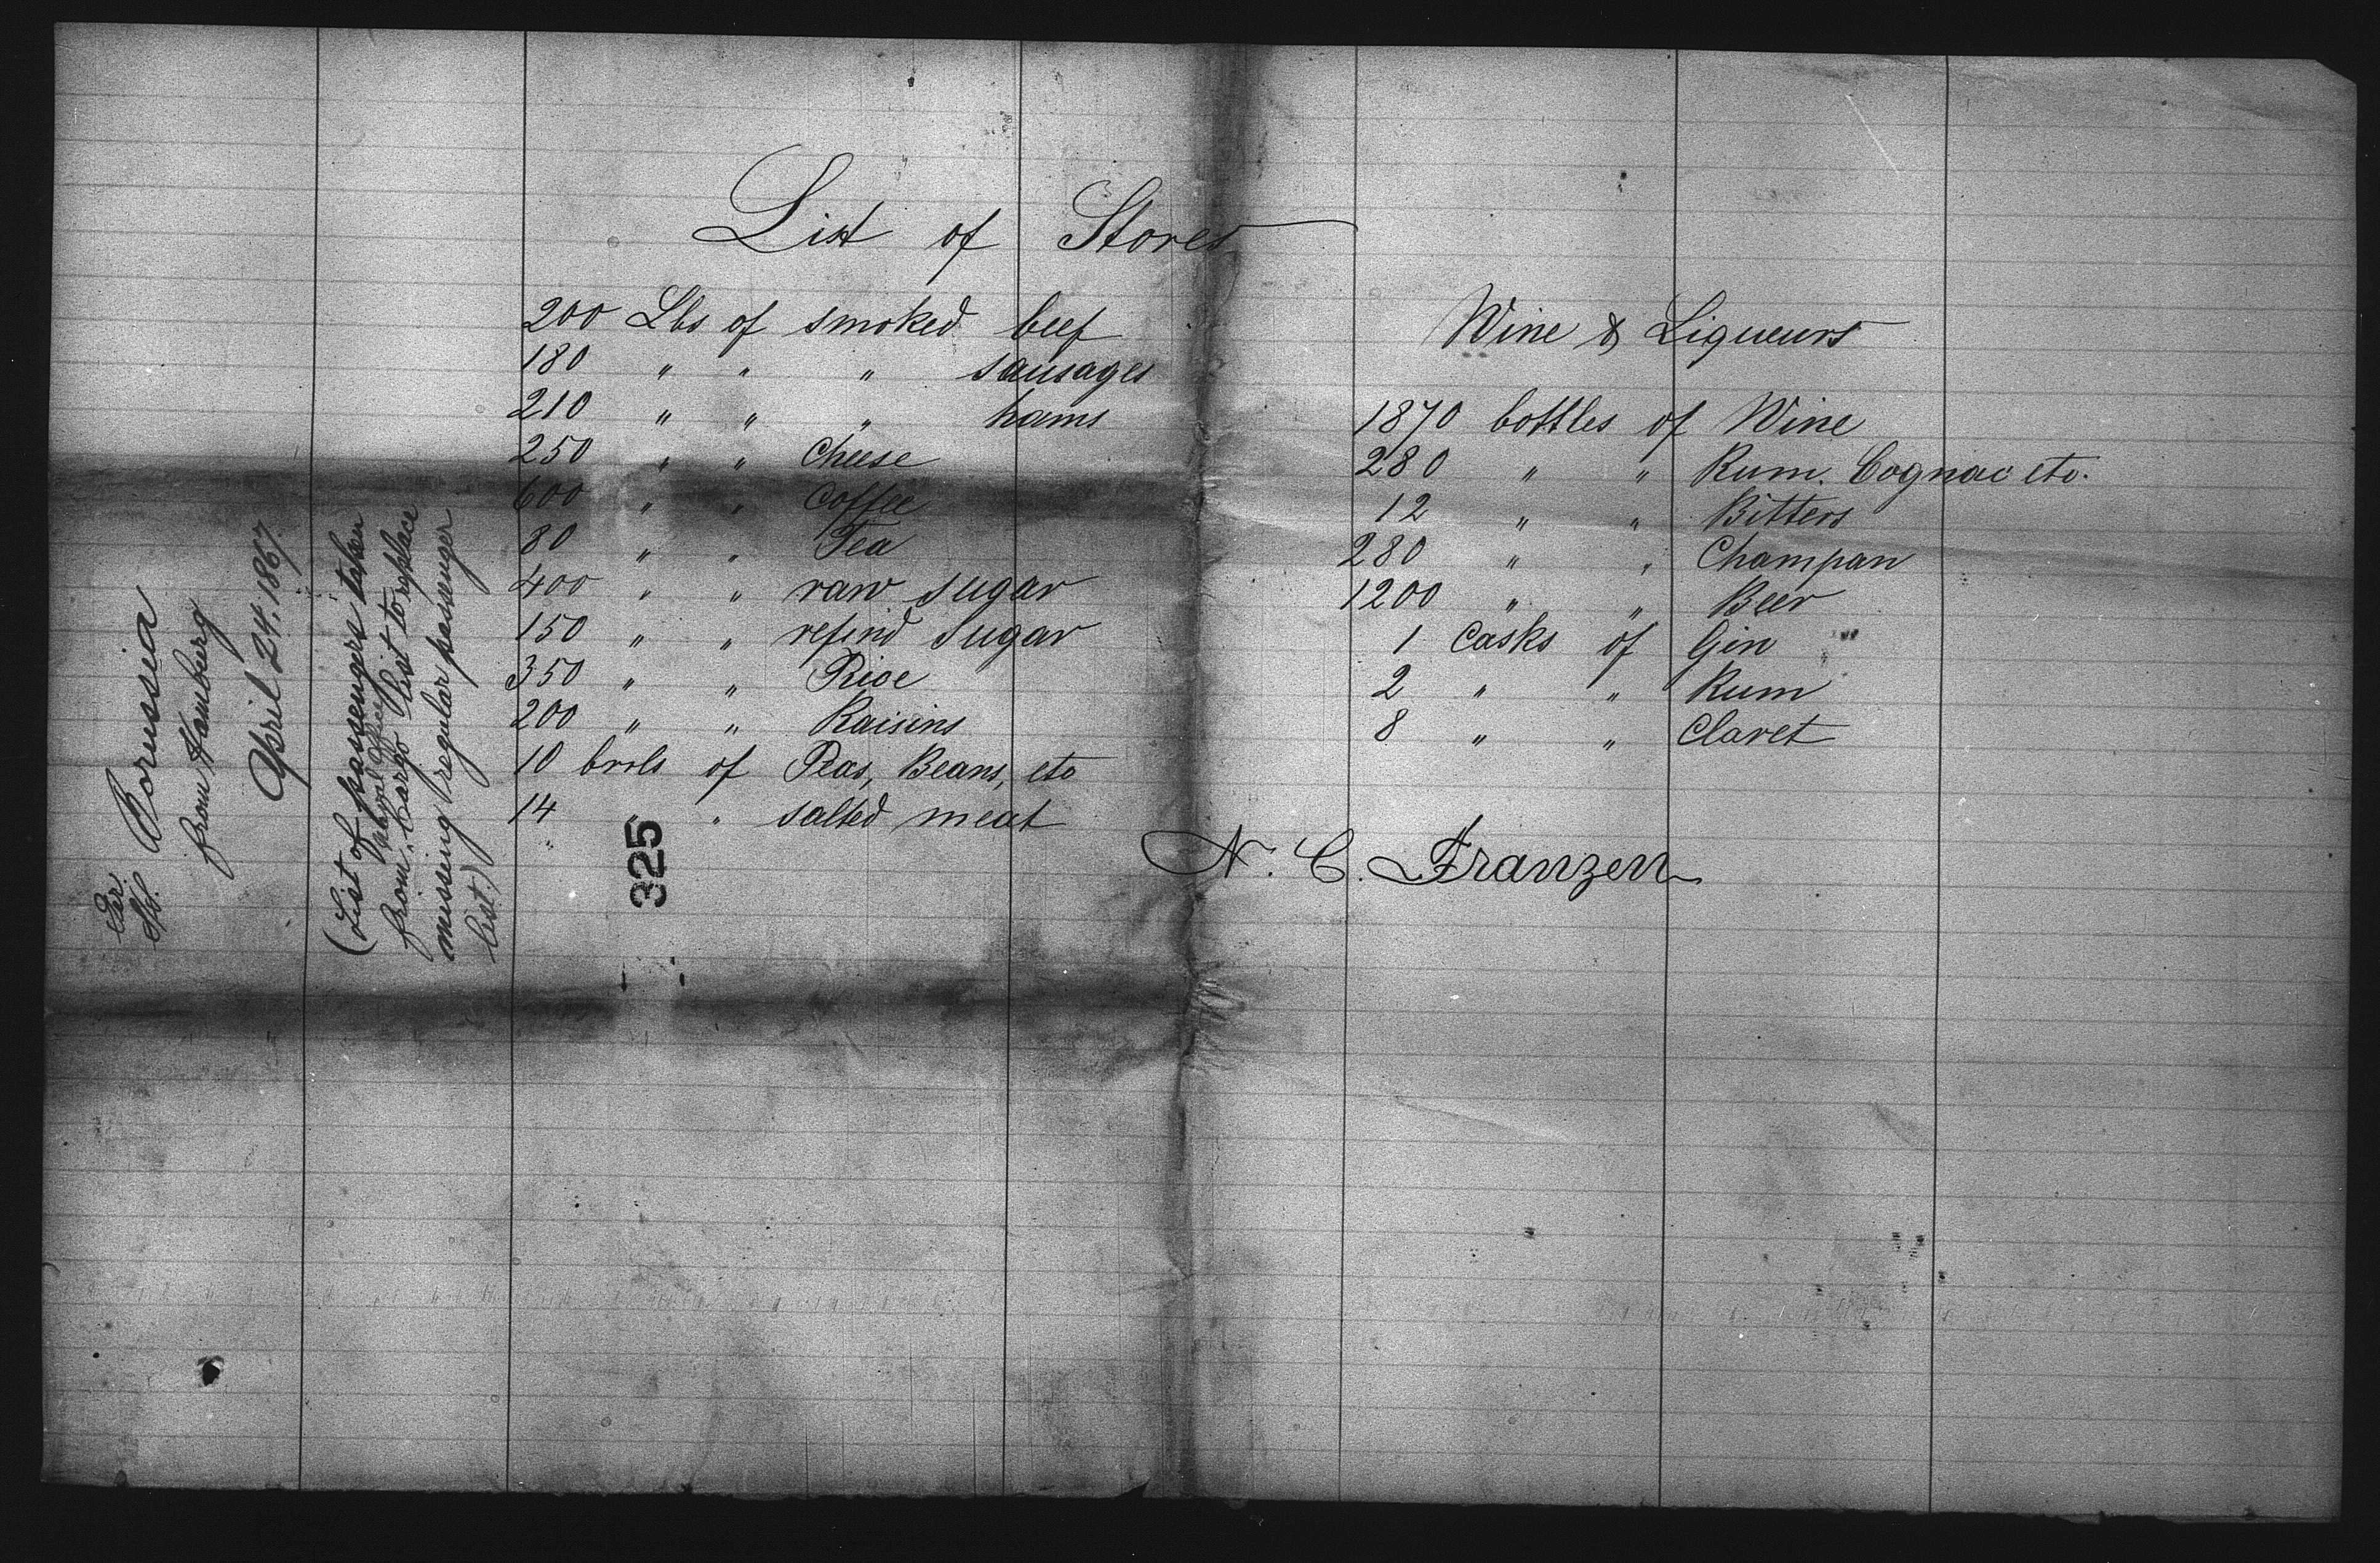 List of Stores
200 Lbs of smoked beef
180 " " " sausages
210 " " " hams
250 " " Cheese
600 " " Coffee
80 " " Tea
400 " " raw sugar
150 " " refind Sugar
350 " " Rice
200 " " Raisins
10 brrls of Peas, Beans, etc
14 " " salted meat
Wine & Liqueurs
1870 bottles of Wine
280 " " Rum. Cognac etc.
12 " " Bitters
280 " " Champan
1200 " " Beer
1 Casks of Gin
2 " " Rum
8 " " Claret
N. C. Franzen
325
Borussia
from Hamburg
April 24, 1867.
(List of passengers taken
from Cargo list to replace
missing regular passenger
list.)